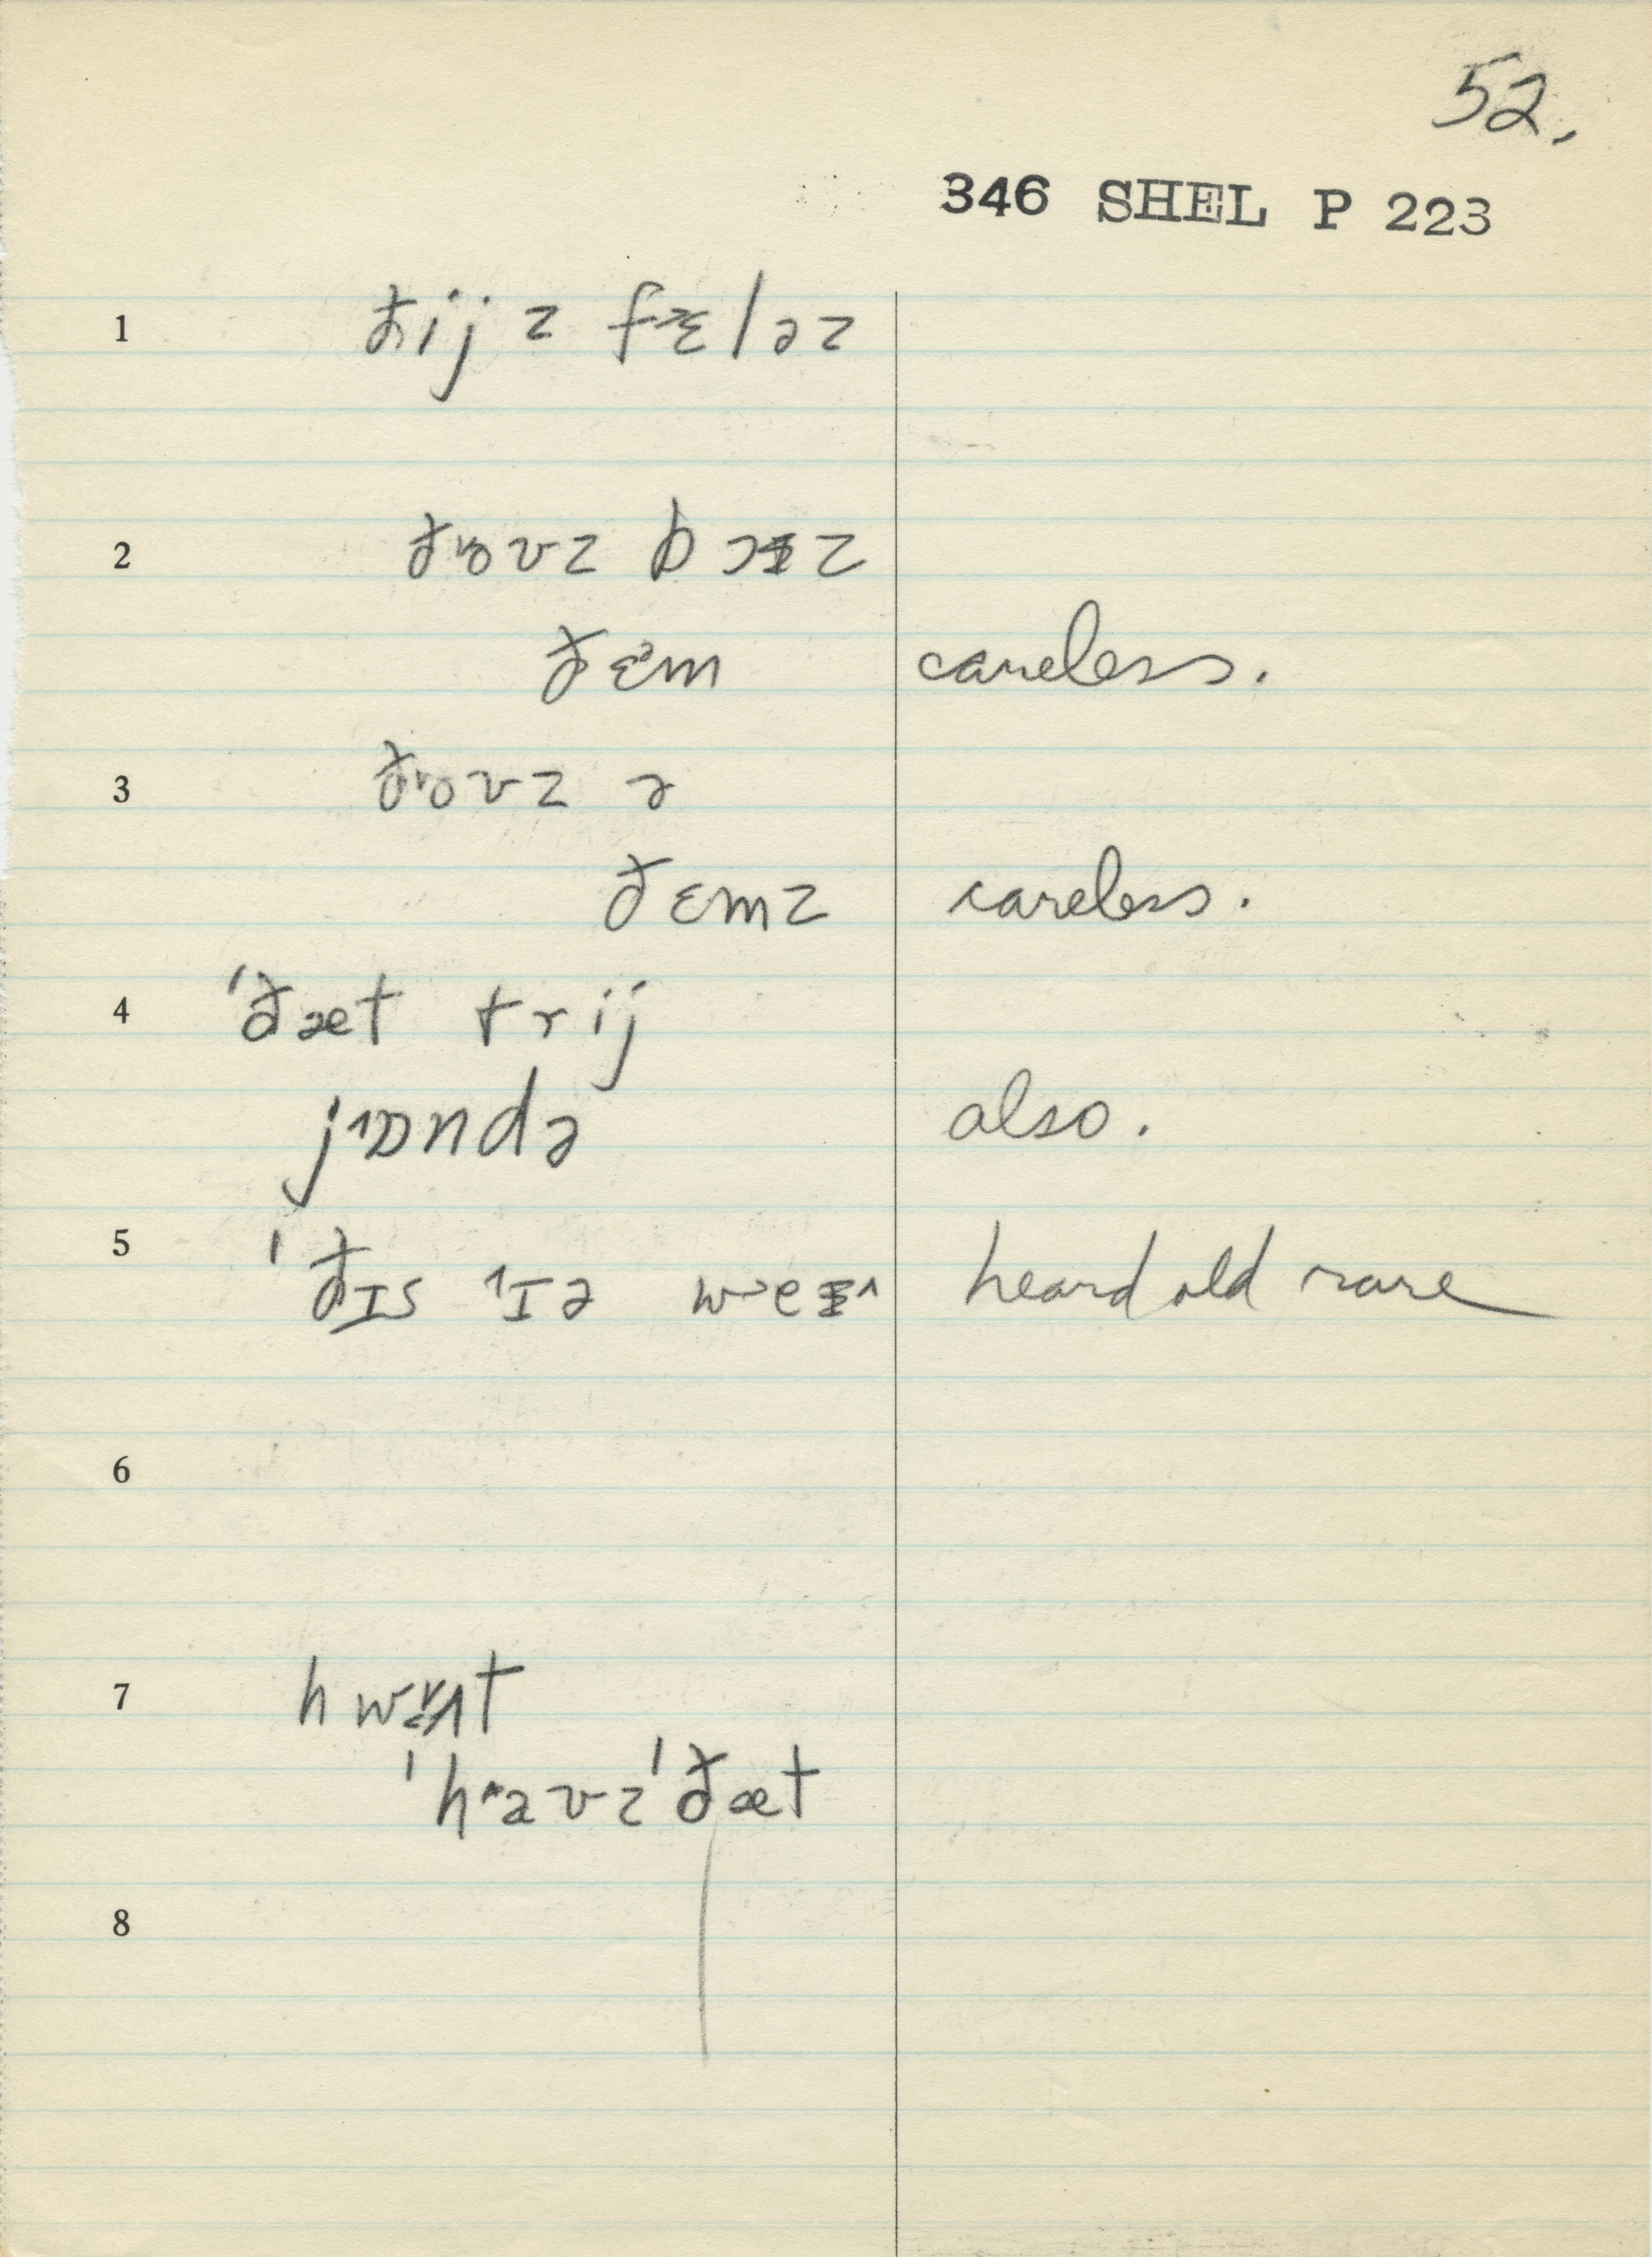 52.
346 SHEL P 223
1 ðij z fɛləz
2 ðoʊz bɔɪz
ðɛᵊm careless.
3 ðoʊz ə
ðɛmz careless.
4 ˈðæt trij
jɒndə also.
5 ˈðɪs ɪə heard old rare
6
7
ˈðæt
8